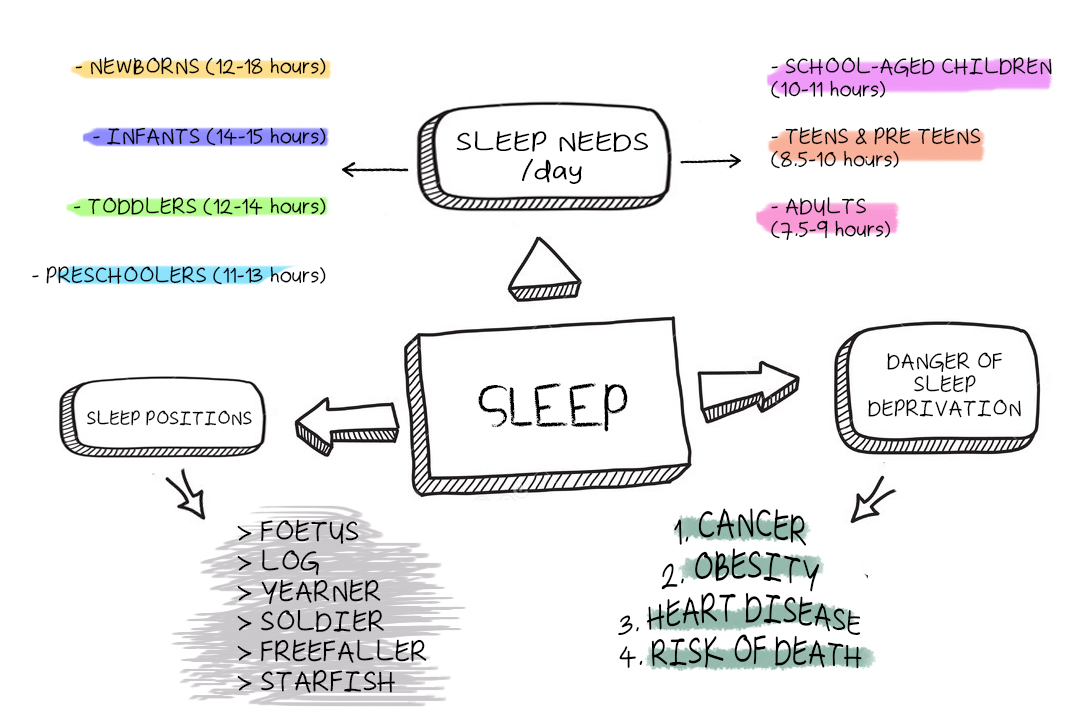 - NEWBORNS (12-18 hours)
- INFANTS (14-15 hours)
- TODDLERS (12-14 hours)
- PRESCHOOLERS (11-13 hours)
SLEEP NEEDS
/day
- SCHOOL-AGED CHILDREN
(10-11 hours)
- TEENS & PRE TEENS
(8.5-10 hours)
- ADULTS
(7.5-9 hours)
SLEEP
SLEEP POSITIONS
> FOETUS
> LOG
> YEARNER
> SOLDIER
> FREEFALLER
> STARFISH
DANGER OF
SLEEP
DEPRIVATION
1. CANCER
2. OBESITY
3. HEART DISEASE
4. RISK OF DEATH